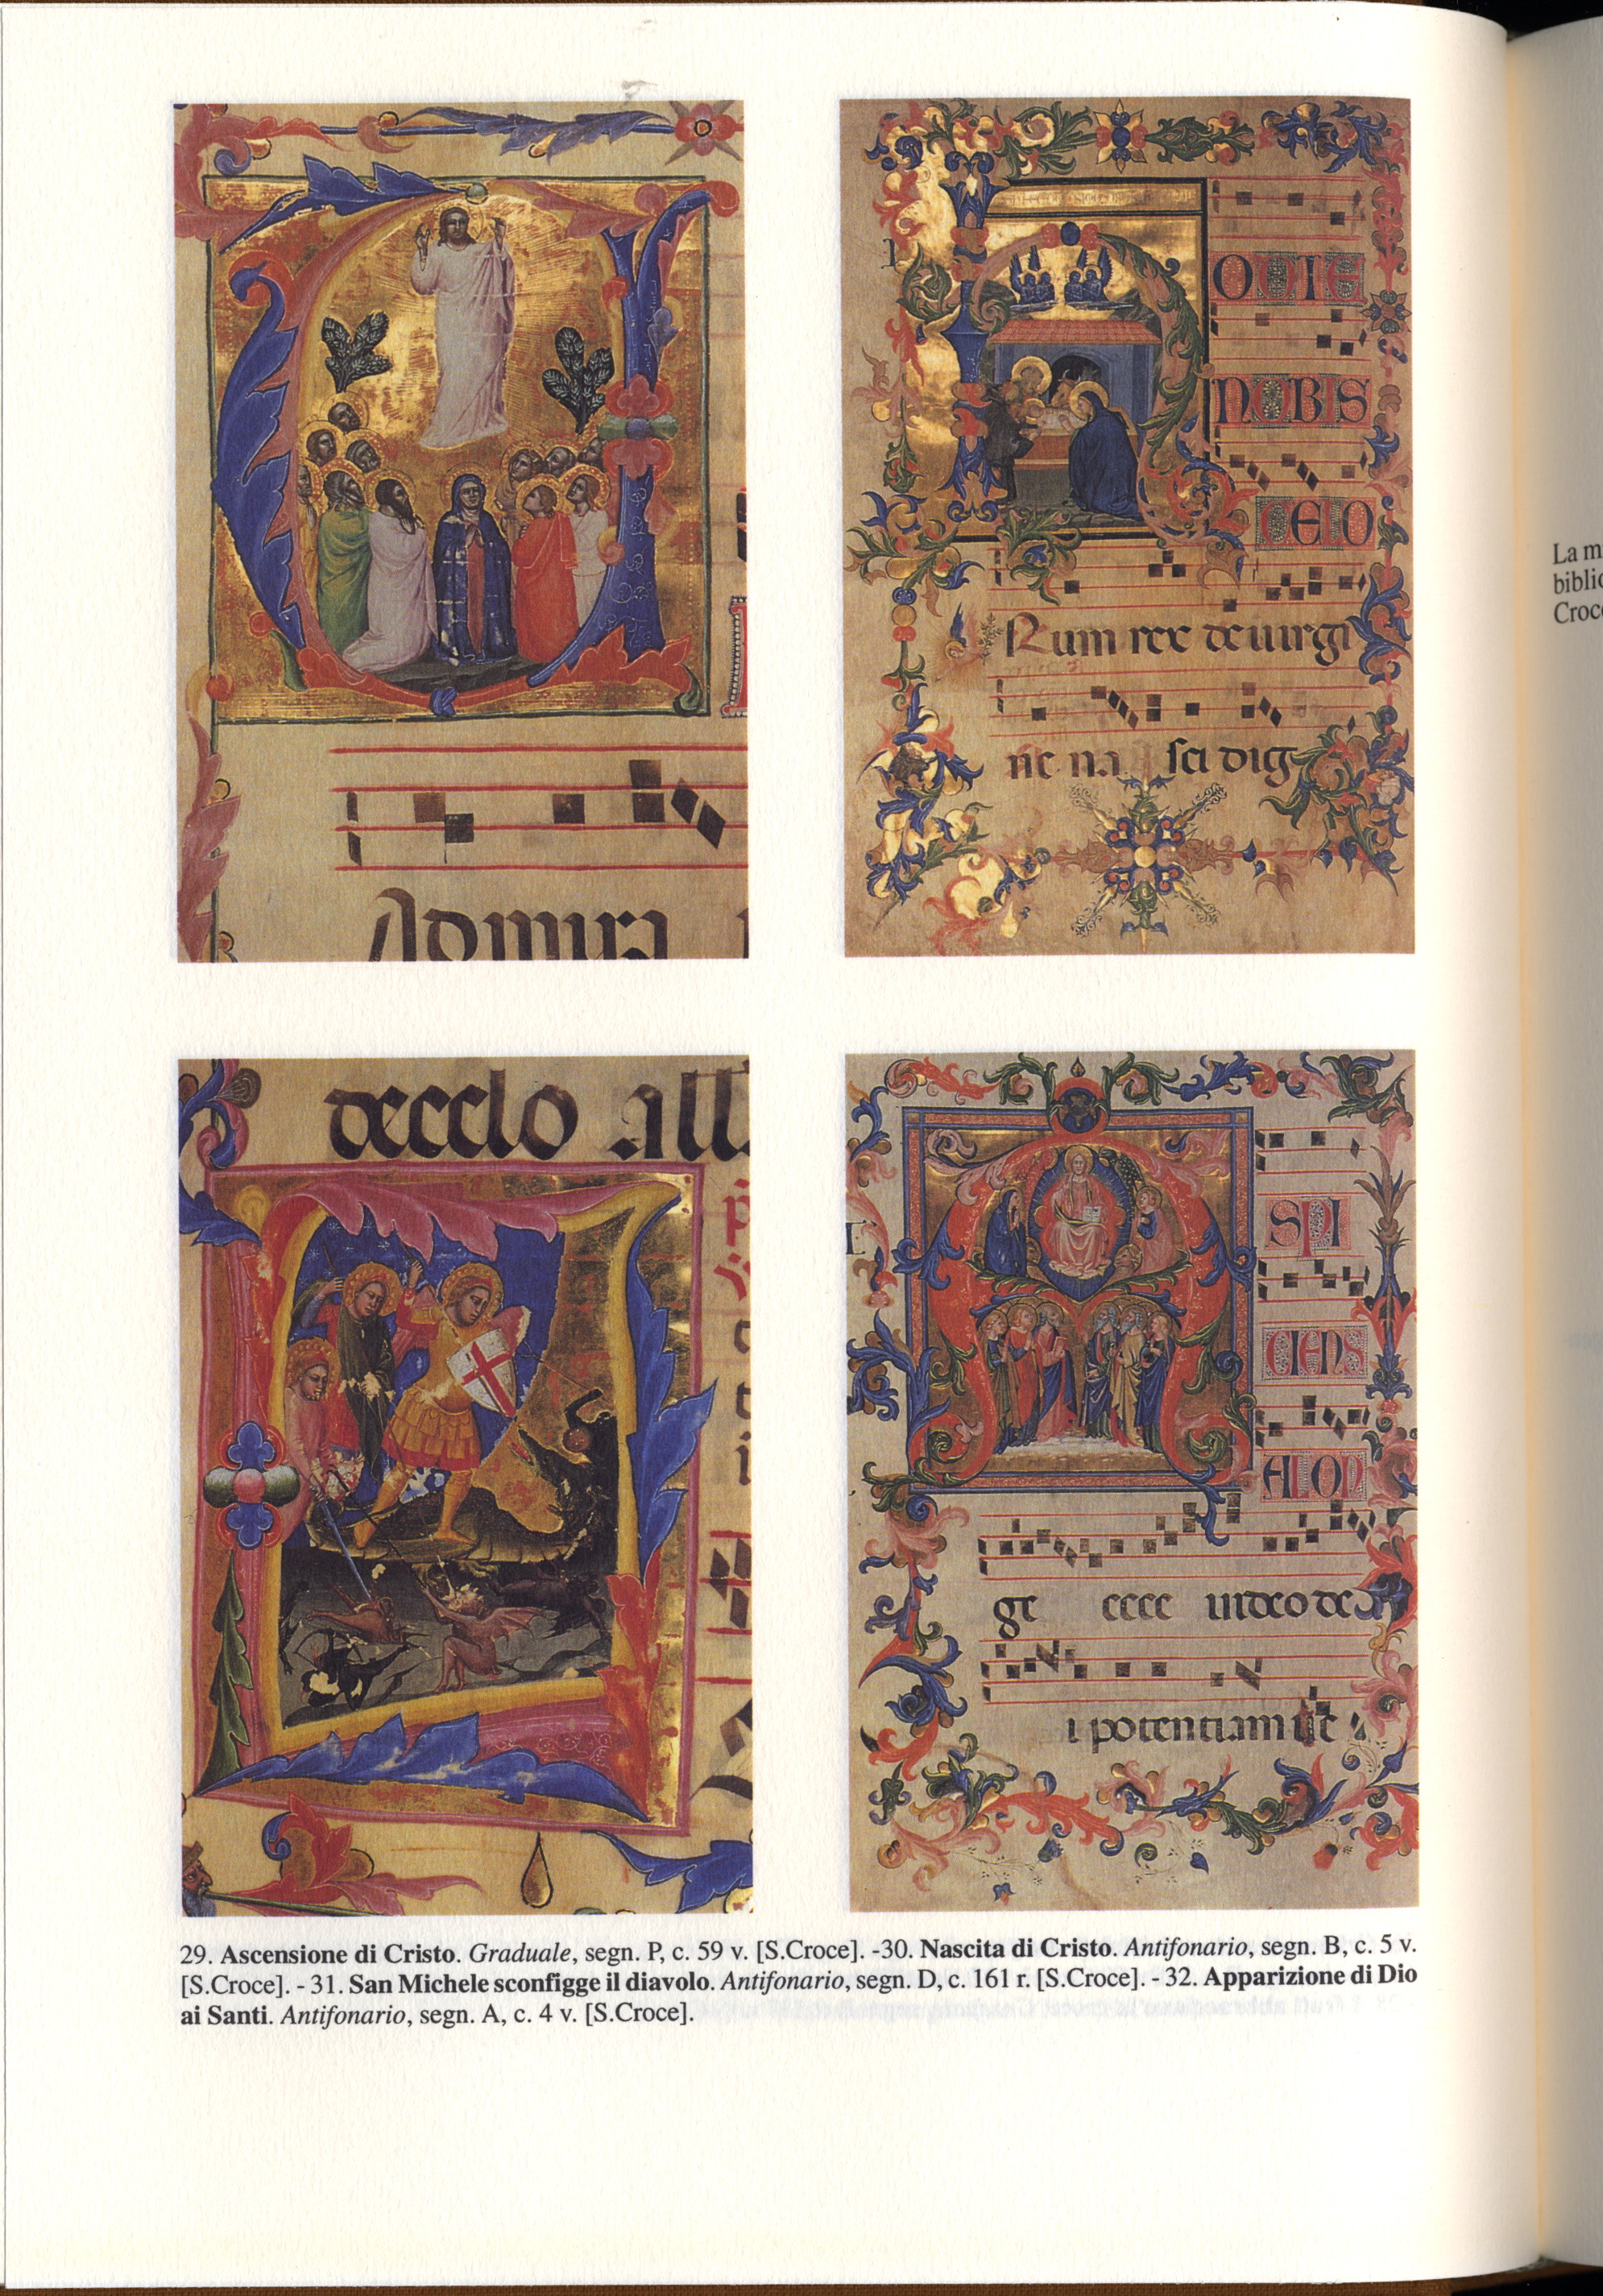 Admira
HODIE
NOBIS
CELO
Rum rex de uirgi
ne na sci dig
de celo all
ASPI
CIENS
ALON
ge ecce uideo de
i potentiam ue
29. Ascensione di Cristo. Graduale, segn. P, c. 59 v. [S.Croce]. -30. Nascita di Cristo. Antifonario, segn. B, c. 5 v.
[S.Croce]. - 31. San Michele sconfigge il diavolo. Antifonario, segn. D, c. 161 r. [S.Croce]. - 32. Apparizione di Dio
ai Santi. Antifonario, segn. A, c. 4 v. [S.Croce].
La m
biblio
Croce